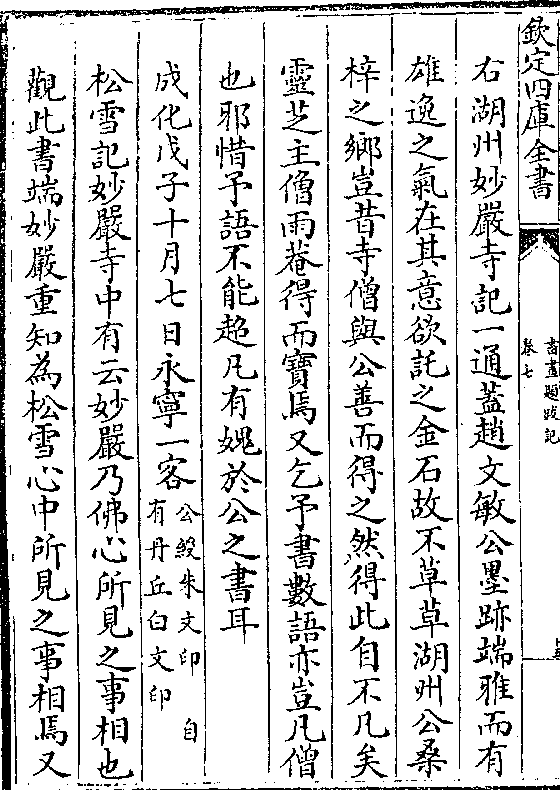 欽定四庫全書
書畫題跋記
卷七
右湖州妙嚴寺記一通蓋趙文敏公墨跡端雅而有
雄逸之氣在其意欲託之金石故不草草湖州公桑
梓之鄉豈昔寺僧與公善而得之然得此自不凡矣
靈芝主僧雨菴得而寶焉又乞予書數語亦豈凡僧
也邪惜予語不能超凡有媿於公之書耳
成化戊子十月七日永寧一客
公綬朱文印 自
有丹丘白文印
松雪記妙嚴寺中有云妙嚴乃佛心所見之事相也
觀此書端妙嚴重知為松雪心中所見之事相焉又